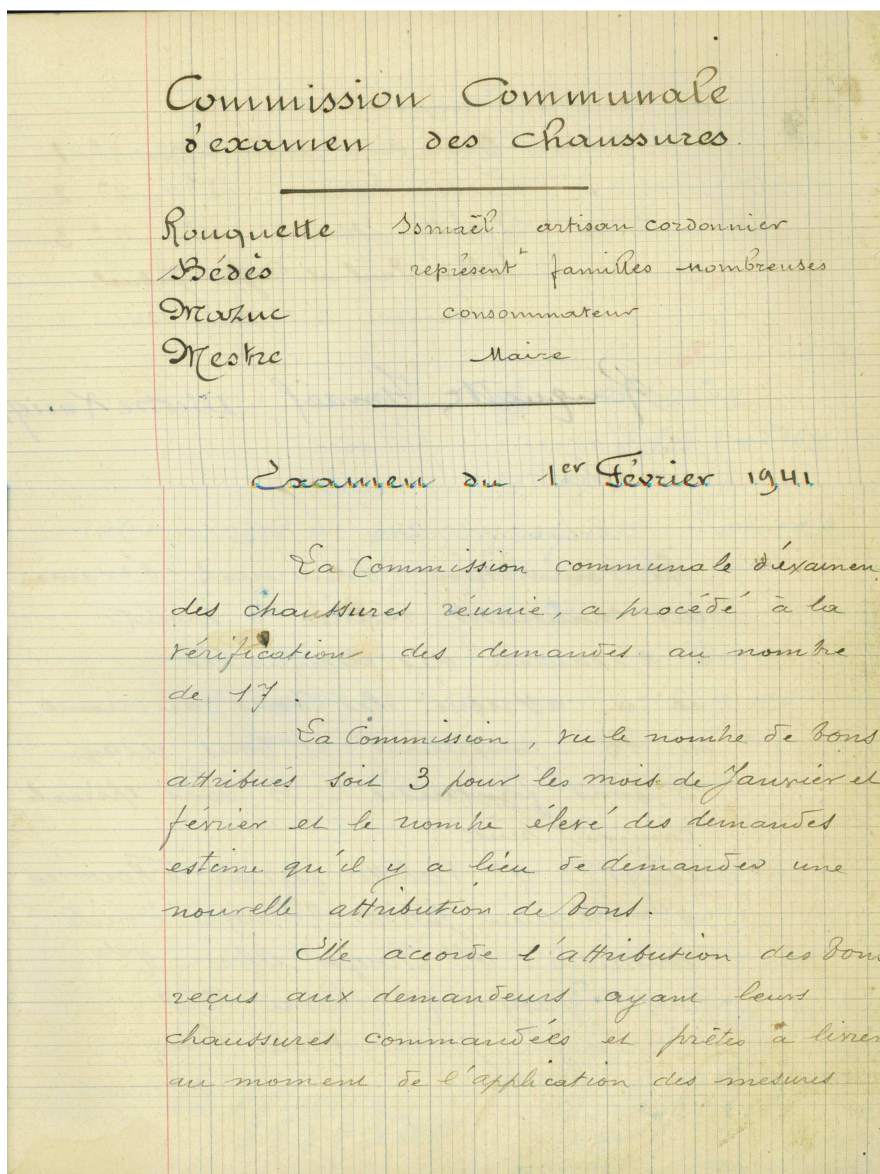 Commission Communale
d'examen des chaussures.
Rouquette Ismaël artisan cordonnier
Bédès représent^t familles nombreuses
Mazuc consommateur
Mestre Maire
Examen du 1er Février 1941
La Commission communale d'éxamen
des chaussures réunie, a procédé à la
vérification des demandes au nombre
de 17.
La Commission, vu le nombre de bons
attribués soit 3 pour les mois de Janvier et
février et le nombre élevé des demandes
estime qu'il y a lieu de demander une
nouvelle attribution de bons.
Elle accorde l'attribution des bons
reçus aux demandeurs ayant leurs
chaussures commandées et prêtes à livrer
au moment de l'application des mesures